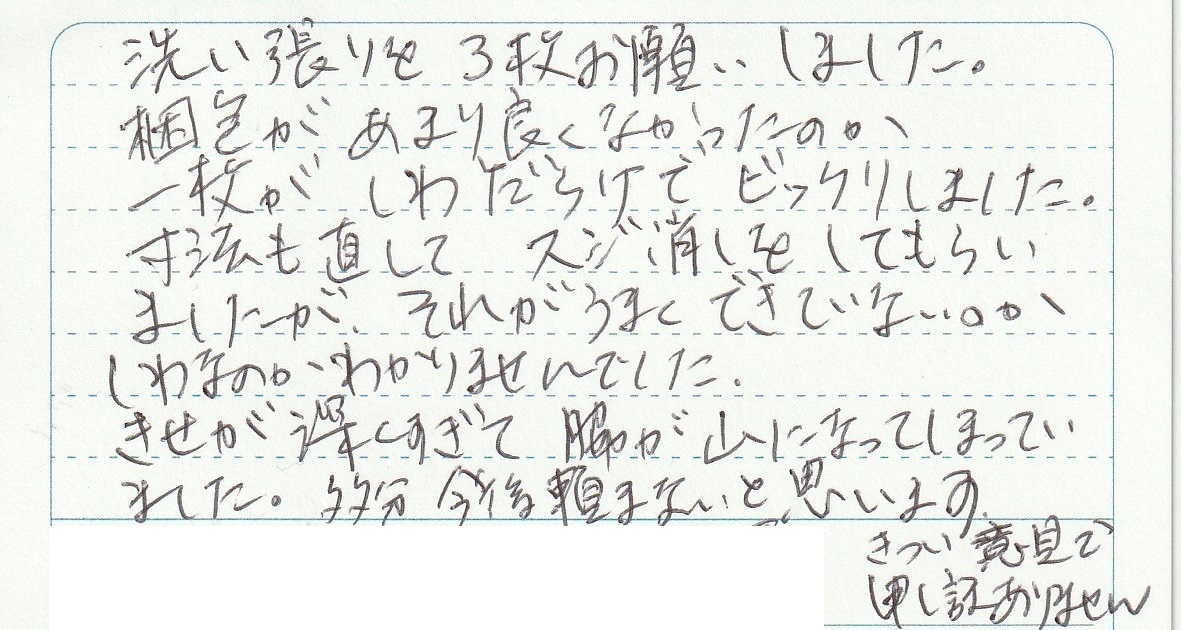 洗い張りを3枚お願いしました。
梱包があまり良くなかったのか
一枚がしわだらけでビックリしました。
寸法も直して スジ消しをしてもらい
ましたが、それがうまくできていないのか
しわなのかわかりませんでした。
きせが深くすぎて 脇が山になってしまってい
ました。多分 今後頼まないと思います。
きつい意見で
申し訳ありません